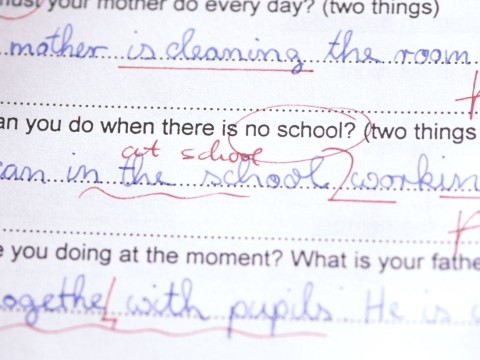 must your mother do every day? (two things)
mother is cleaning the room
an you do when there is no school? (two things
at school
can in the school workin
e you doing at the moment? What is your fathe
ogethe with pupils He is